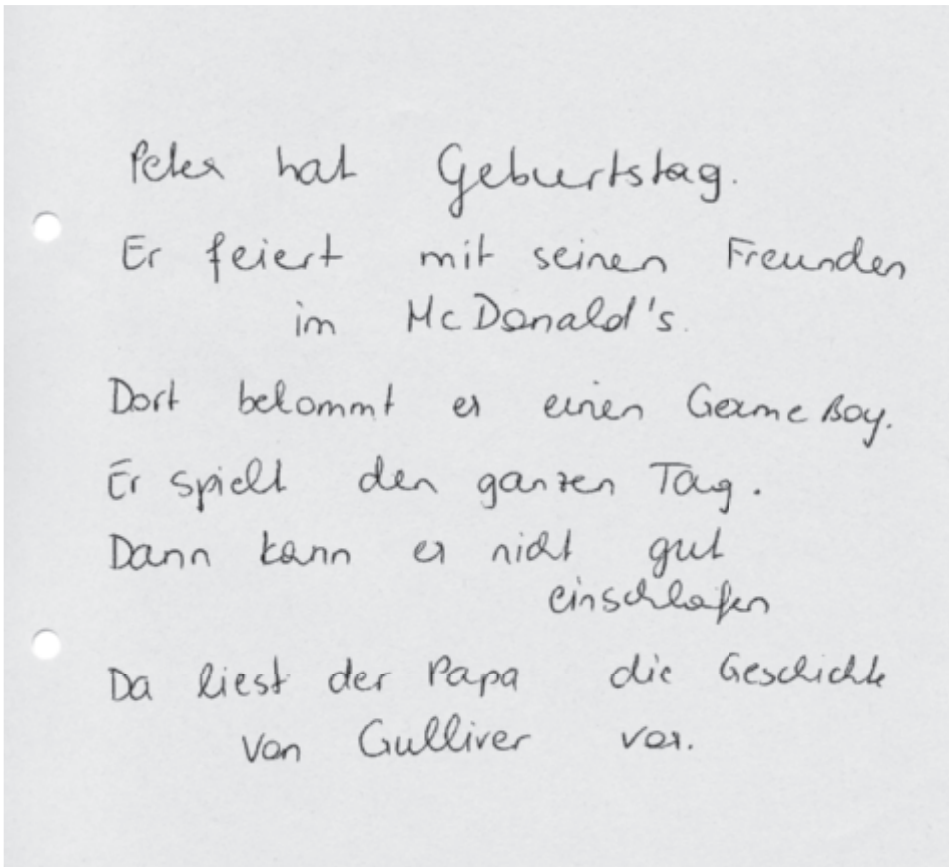 Peter hat Geburtstag.
Er feiert mit seinen Freunden
im McDonald's.
Dort bekommt er einen GameBoy.
Er spielt den ganzen Tag.
Dann kann er nicht gut
einschlafen
Da liest der Papa die Geschichte
von Gulliver vor.